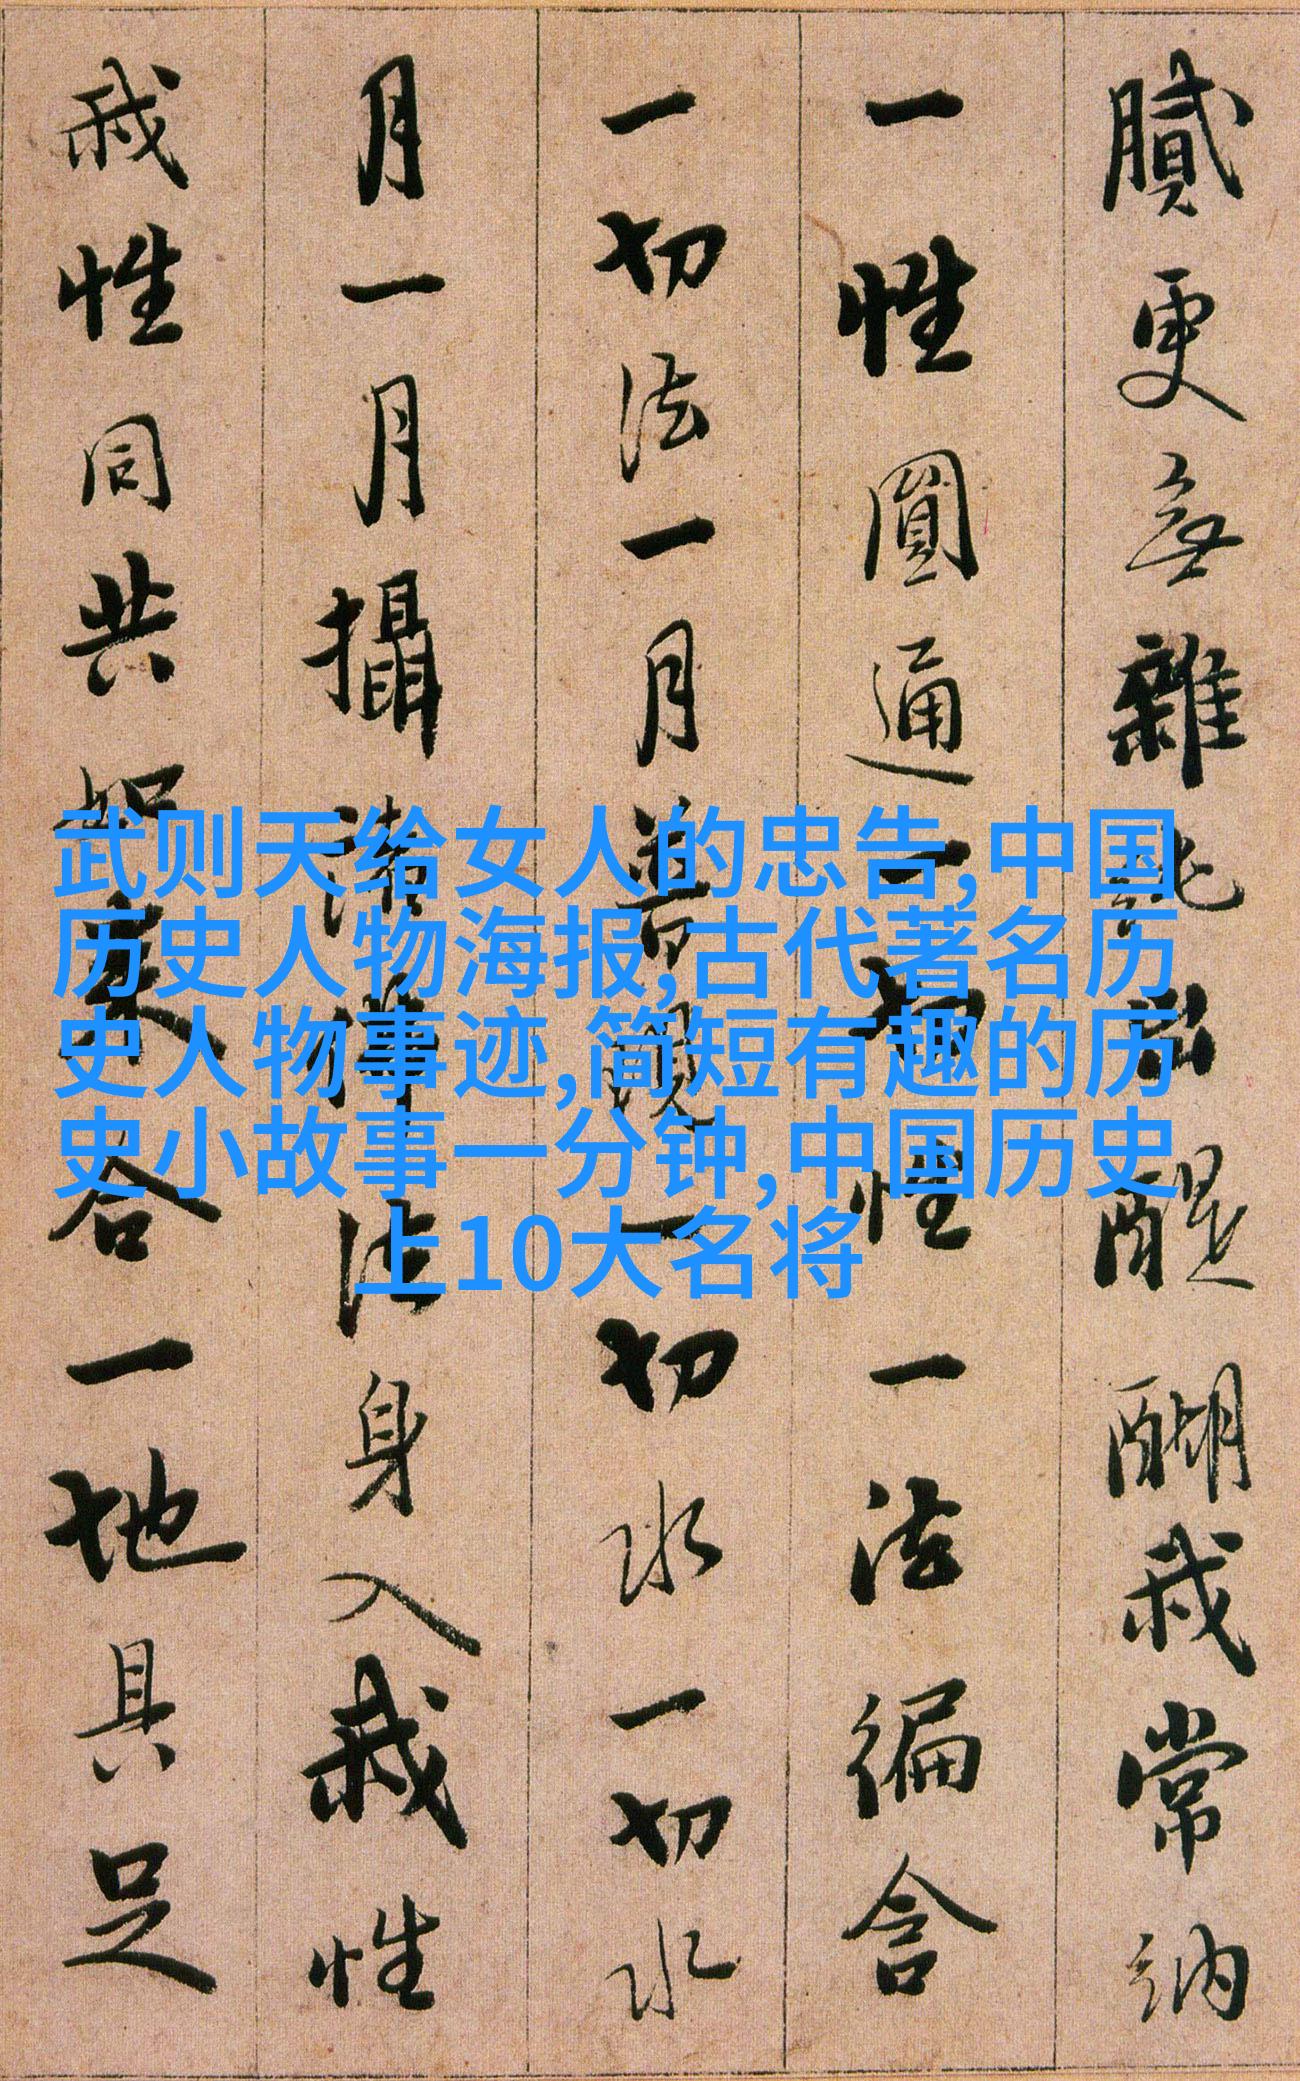 膩更無雜純出醍醐我常納
一性圓通一切性一法徧含
一切法一月普現一切水一切水
月一月攝諸佛法身入我性
我性同共如來合一地具足
武则天给女人的忠告,中国
历史人物海报,古代著名历
史人物事迹,简短有趣的历
史小故事一分钟,中国历史
上10大名将